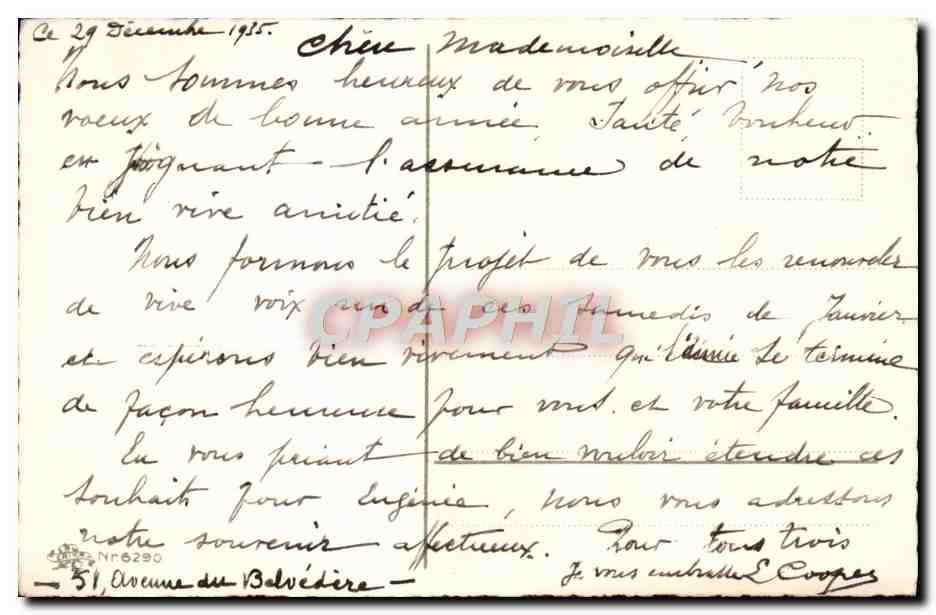 Ce 29 Décembre 1935.
Chère Mademoiselle
Nous sommes heureux de vous offrir nos
voeux de bonne année, Santé, bonheur
en joignant l'assurance de notre
bien vive amitié.
Nous formons le projet de vous les renouveler
de vive voix un de ces samedis de Janvier
et espérons bien vivement que l'année se termine
de façon heureuse pour vous et votre famille.
En vous priant de bien vouloir étendre ces
souhaits pour Eugénie, nous vous adressons
notre souvenir affectueux. Pour tous trois
Je vous embrasse E Cooper
Nr 6290
- 51, Avenue du Belvédère -
CPAPHIL